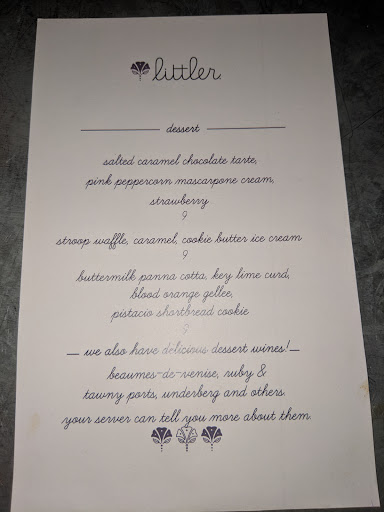 littler
dessert
salted caramel chocolate tarte,
pink peppercorn mascarpone cream,
strawberry
9
stroop waffle, caramel, cookie butter ice cream
9
buttermilk panna cotta, key lime curd,
blood orange gellee,
pistacio shortbread cookie
9
we also have delicious dessert wines!
beaumes-de-venise, ruby &
tawny ports, underberg and others.
your server can tell you more about them.